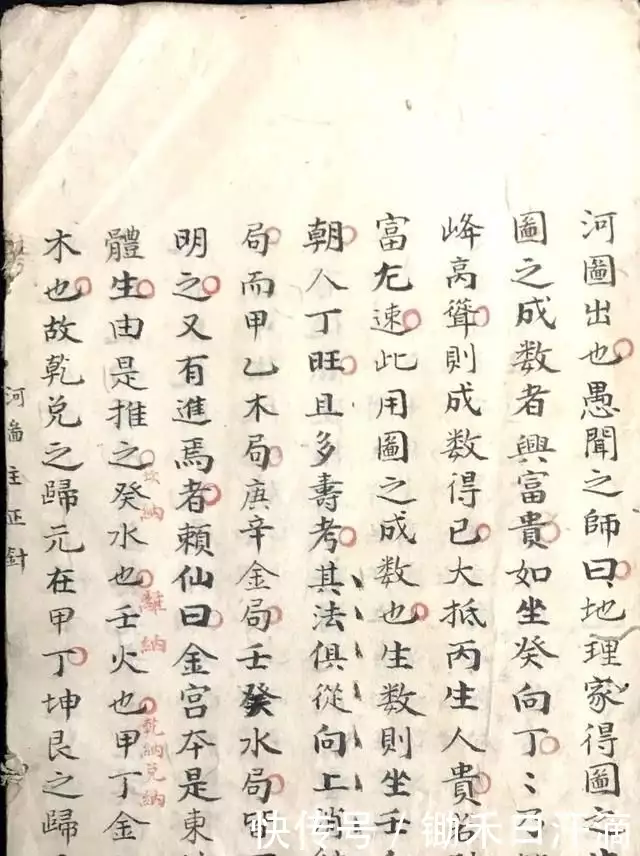 河圖出也愚聞之師曰地理家得圖之
圖之成数者興富貴如坐癸向丁
峰髙聳則成数得已大抵丙生人貴
富尤速此用圖之成数也生数則坐壬
朝人丁旺且多壽考其法俱從向上
局而甲乙木局庚辛金局壬癸水局
明之又有進焉者頼仙曰金宫夲是東
體生由是推之癸水也壬火也甲丁金
坎納
離納
乾納兑納
木也故乾兑之歸元在甲丁坤艮之歸
河啚主正針
快传号/锄禾日汗滴